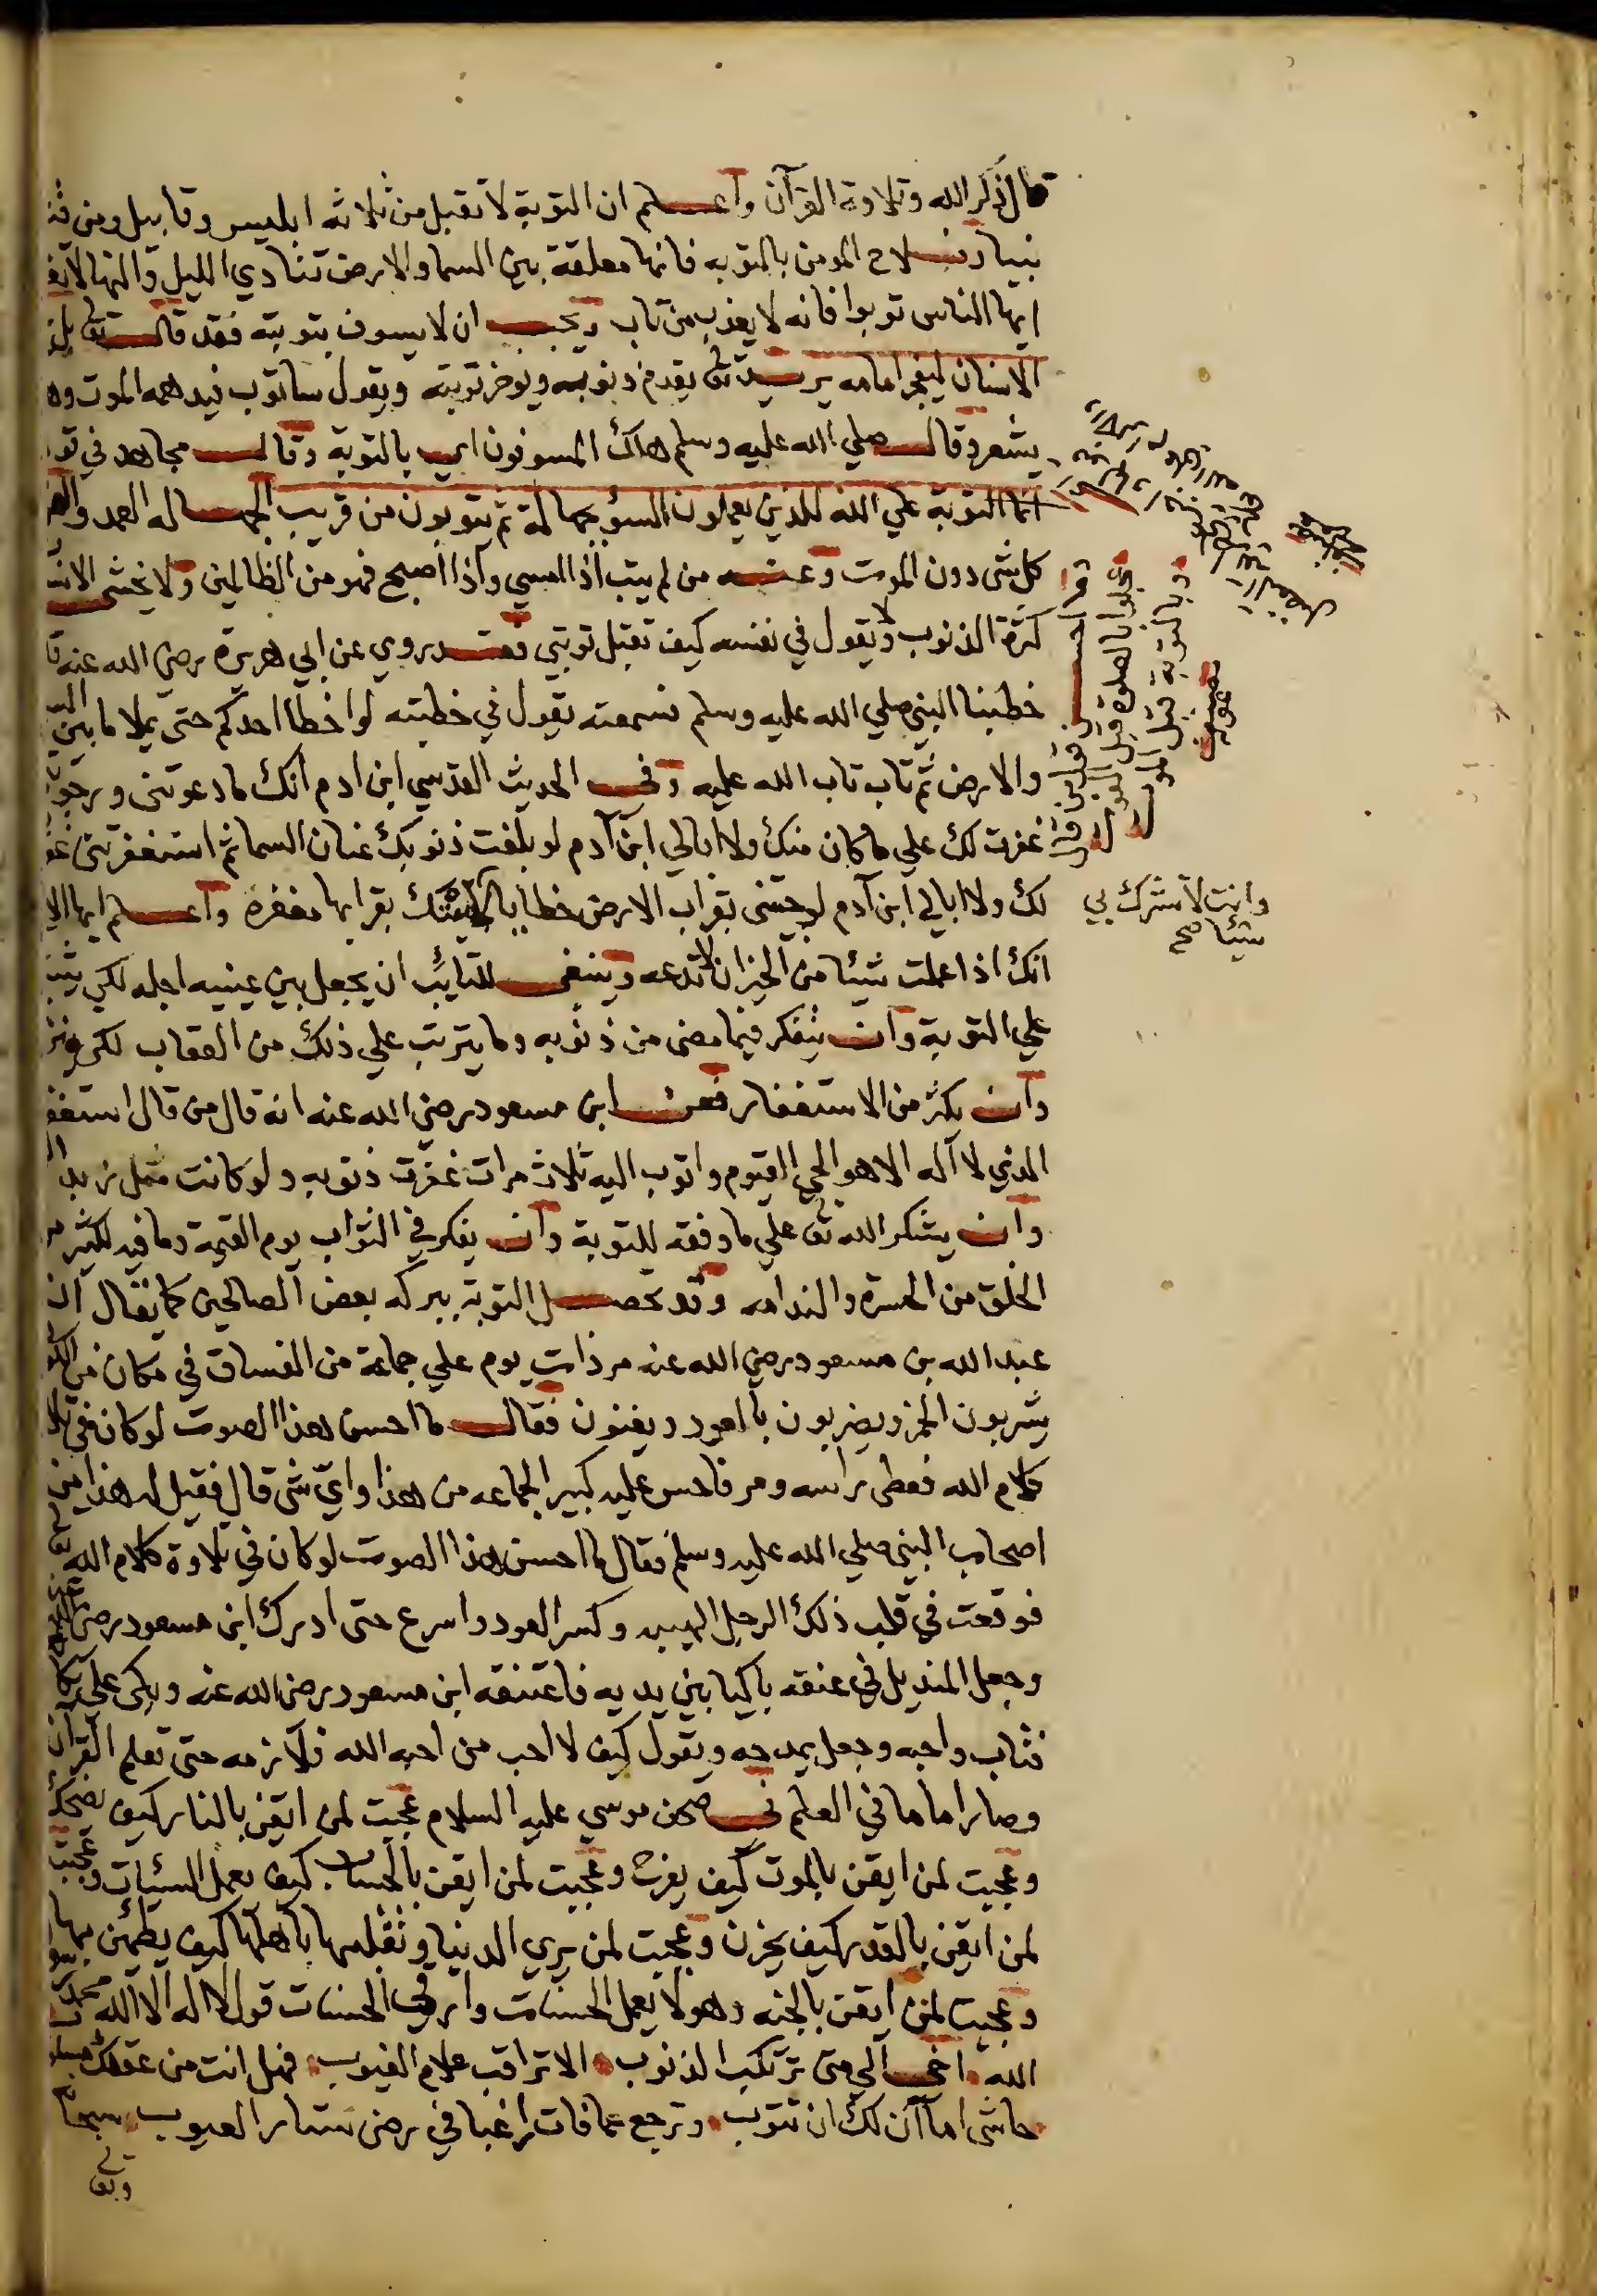 قال ذكر الله وتلاوة القرآن واعلم ان التوبة لا تقبل من ثلاثه ابليس وقابيل ومن قتل
نبيا وسلاح المومن بالتوبه فانها معلقة بين السما والارض تنادي الليل والنهار لا تفتر
ايها الناس توبوا فانه لا يعذب من تاب ويجب ان لا يسوف بتوبته فقد قال تعالى بل يريد
الانسان ليفجر امامه يريد ان يقدم ذنوبه ويوخر توبته ويقول ساتوب فيدهمه الموت وهو
يشعر وقال صلي الله عليه وسلم هلك المسوفون اي بالتوبة وقال مجاهد في قوله
انما التوبة علي الله للذين يعملون السوء بجهالة ثم يتوبون من قريب الجهاله العمد والقريب
كل شي دون الموت وعنه من لم يتب اذا امسي واذا اصبح فهو من الظالمين ولا يخشى الانسان
كثرة الذنوب ولا يقول في نفسه كيف تقبل توبتي فقد روي عن ابي هريرة رضي الله عنه قال
خطبنا النبي صلي الله عليه وسلم فسمعته يقول في خطبته لو اخطأ احدكم حتى يملا ما بين السما
والارض ثم تاب تاب الله عليه وفي الحديث القدسي ابن ادم انك ما دعوتنى ورجوتنى
غفرت لك علي ما كان منك ولا ابالي ابن آدم لو بلغت ذنوبك عنان السما ثم استغفرتنى غفرت
لك ولا ابالي ابن آدم لو جئتنى بقراب الارض خطايا لاتيتك بقرابها مغفرة واعلم ايها الاخ
وانت لا تشرك بي
شيئا صح
انك اذا عملت شيئا من الخير ان لا تدعه وينبغي للتائب ان يجعل بين عينيه اجله لكي يثبت
علي التوبة وان يتفكر فيما مضى من ذنوبه وما يترتب علي ذلك من العقاب لكي
وان يكثر من الاستغفار فعن ابن مسعود رضي الله عنه انه قال من قال استغفر
الذي لا اله الا هو الحي القيوم واتوب اليه ثلاث مرات غفرت ذنوبه ولو كانت مثل زبد
وان يشكر الله تعالى علي ما وفقه للتوبة وان يفكر في الثواب يوم القيمة وما فيه لكثير من
الخلق من الحسرة والندامه وقد تحصل التوبة ببركه بعض الصالحين كما يقال ان
عبد الله بن مسعود رضي الله عنه مر ذات يوم علي جماعة من الفساق في مكان من الكوفة
يشربون الخمر ويضربون بالعود ويغنون فقال ما احسن هذا الصوت لو كان في تلاوة
كلام الله فغطى راسه ومر فاحس عليه كبير الجماعه من هذا واي شي قال فقيل له هذا من
اصحاب النبي صلي الله عليه وسلم فقال ما احسن هذا الصوت لو كان في تلاوة كلام الله تعالى
فوقعت في قلب ذلك الرجل الهيبه وكسر العود واسرع حتى ادرك ابن مسعود رضي الله عنه
وجعل المنديل في عنقه باكيا بين يديه فاعتنقه ابن مسعود رضي الله عنه وبكى علي بكائه
فتاب واحبه وجعل يمدحه ويقول كيف لا احب من احبه الله فلازمه حتى تعلم القرآن
وصار اماما في العلم في صحف موسي عليه السلام عجبت لمن ايقن بالنار كيف يضحك
وعجبت لمن ايقن بالموت كيف يفرح وعجبت لمن ايقن بالحساب كيف يعمل السيئات وعجبت
لمن ايقن بالقدر كيف يحزن وعجبت لمن يري الدنيا وتقلبها باهلها كيف يطمئن بها
وعجبت لمن ايقن بالجنه وهو لا يعمل الحسنات وارجى الحسنات قول لا اله الا الله محمد رسول
الله اخي الي متى ترتكب الذنوب الا تراقب علام الغيوب فهل انت من عقلك مسلوب
حاشى اما آن لك ان تتوب وترجع عما فات راغبا في رضى ستار العيوب سبحانه
وتعالى